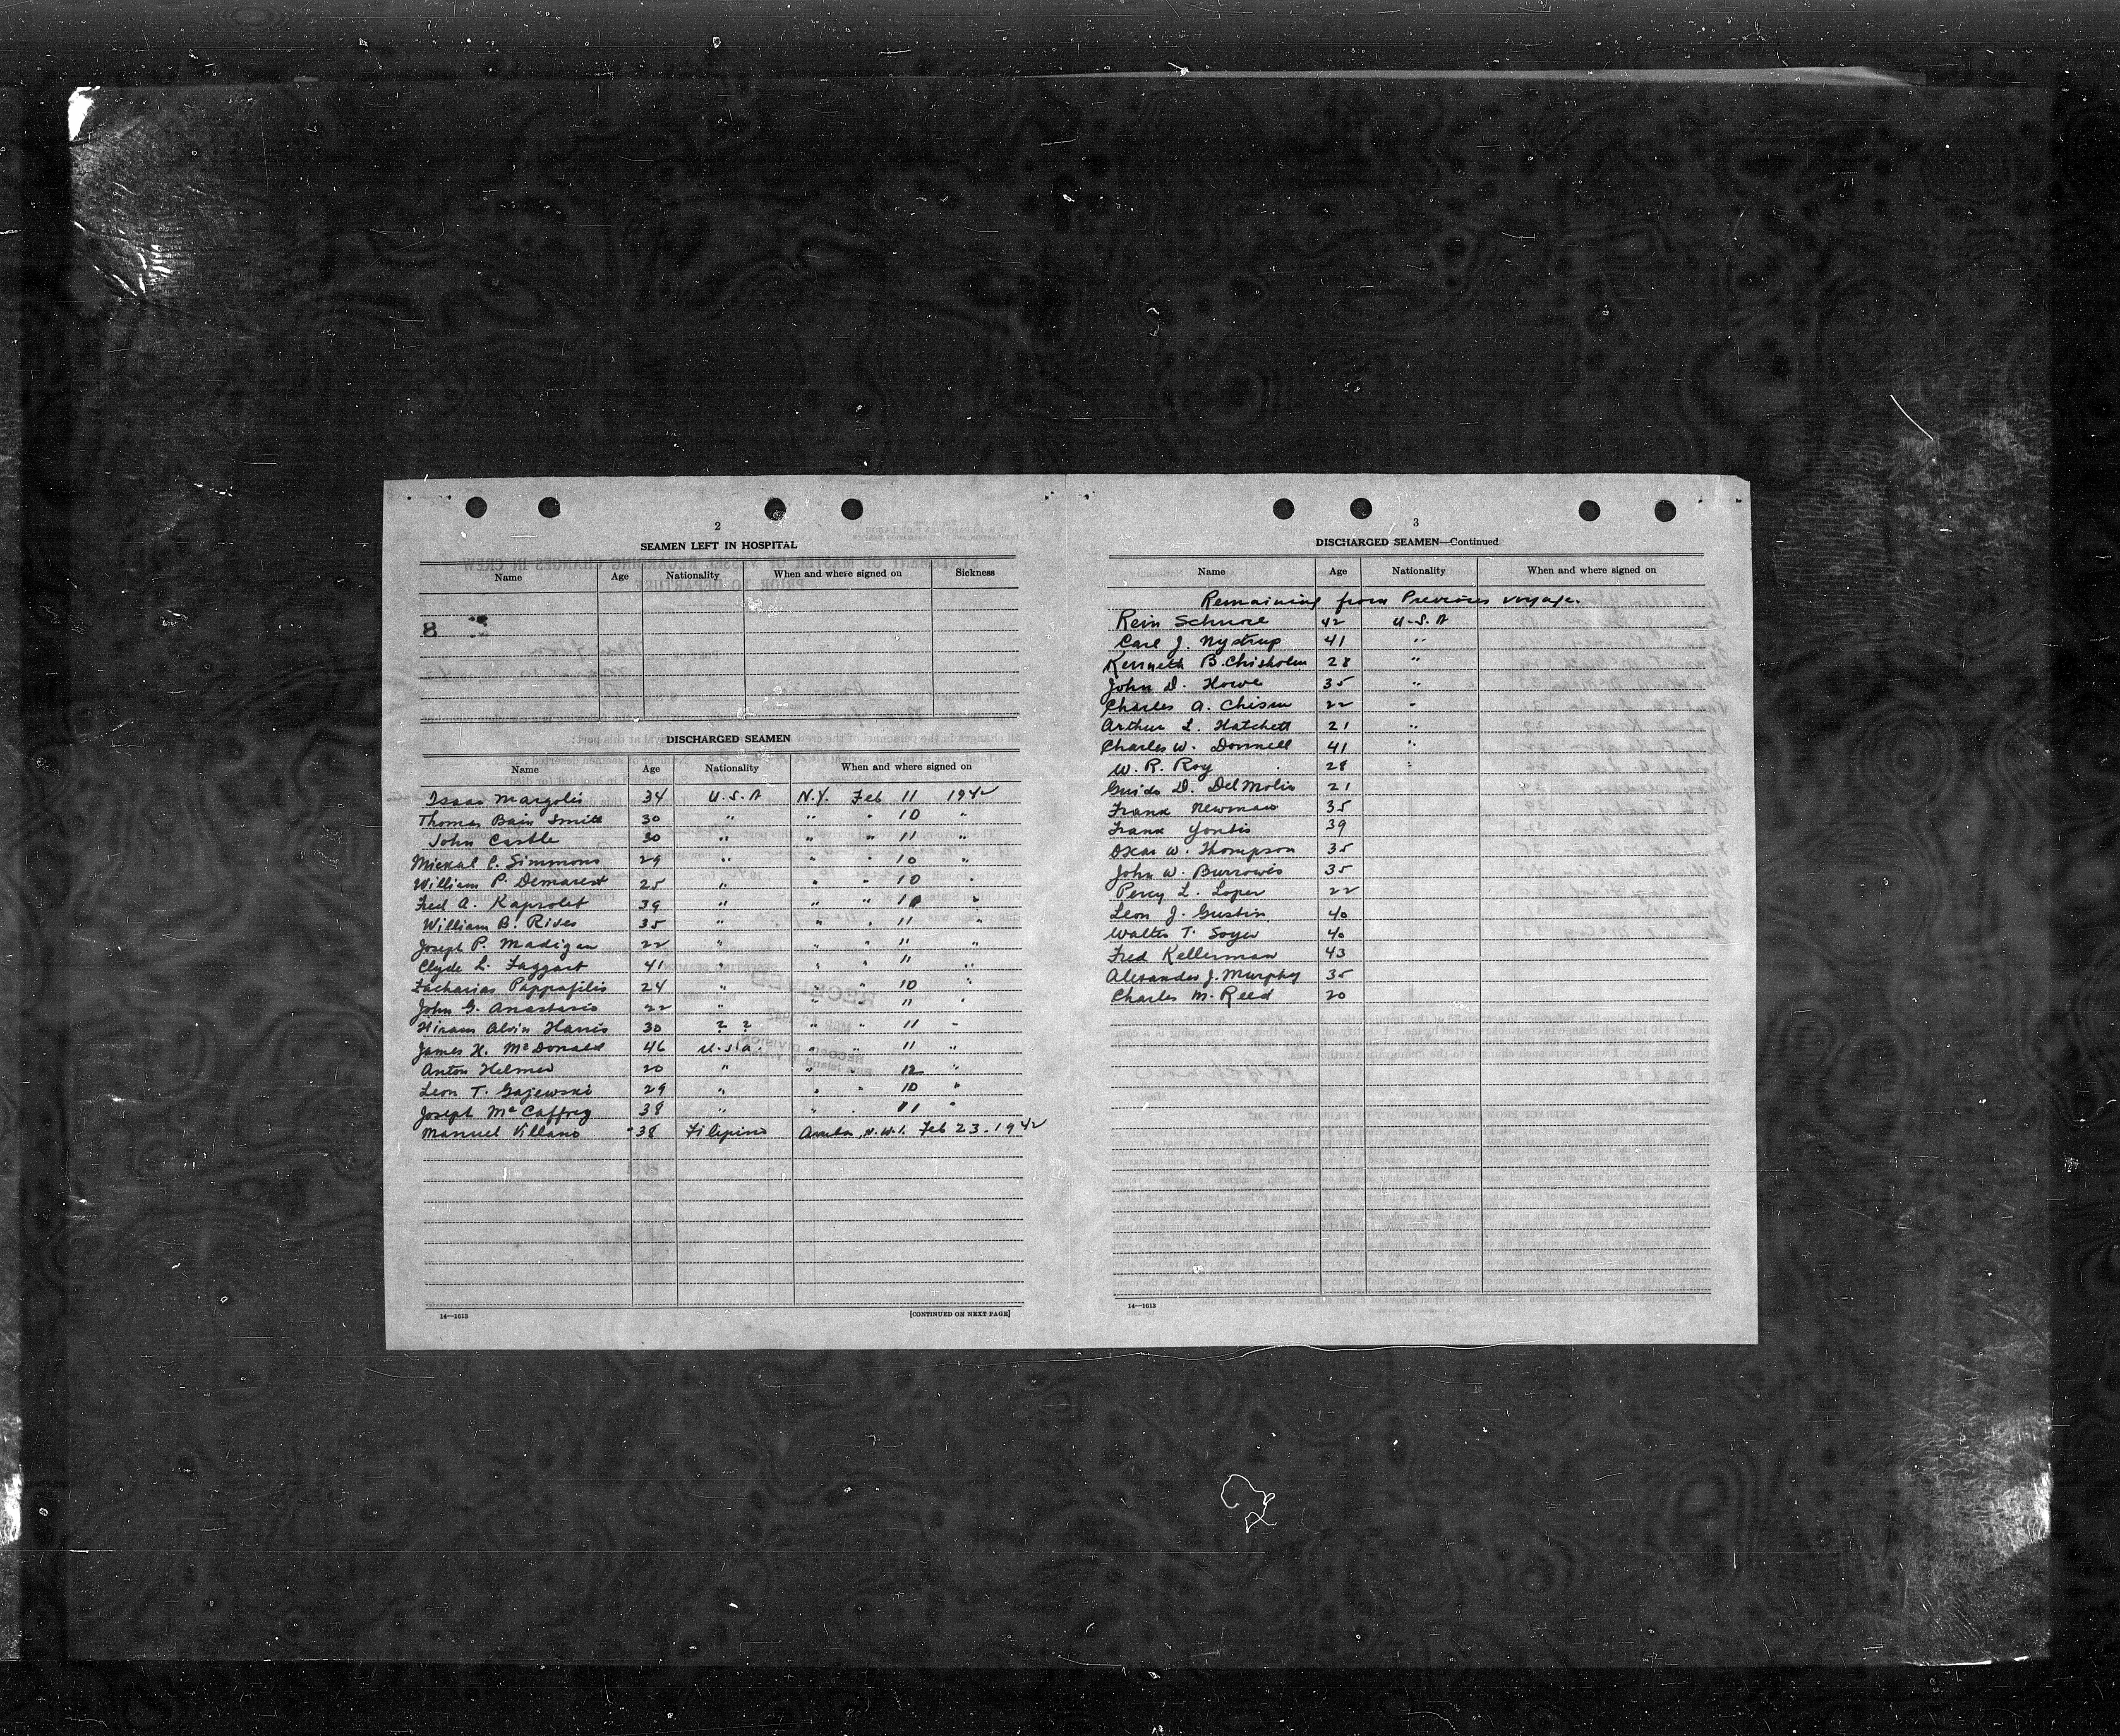 2
SEAMEN LEFT IN HOSPITAL
Name Age Nationality When and where signed on Sickness
8
DISCHARGED SEAMEN
Name Age Nationality When and where signed on
Isaac Margolis 34 U.S.A N.Y. Feb 11 1942
Thomas Bain Smith 30 " " " 10 "
John Castle 30 " " " 11 "
Mickal C. Simmons 29 " " " 10 "
William P. Demarest 25 " " " 10 "
Fred A. Kaprolet 39 " " " "
William B. Rides 35 " " " 11 "
Joseph P. Madigan 22 " " " 11 "
Clyde L. Faggart 41 " " " 11 "
Zacharias Pappafilis 24 " " " 10 "
John G. Anastasio 22 " " " 11 "
Hiram Alvin Harris 30 ? ? " " 11 "
James H. McDonald 46 U.S.A. " " 11 "
Anton Helmer 20 " " " 12 "
Leon T. Gajewski 29 " " " 10 "
Joseph McCaffrey 38 " " " 11 "
Manuel Villano 38 Filipino Aruba, N.W.I. Feb 23-1942
14—1613 [CONTINUED ON NEXT PAGE]
3
DISCHARGED SEAMEN—Continued
Name Age Nationality When and where signed on
Remaining from Previous voyage.
Rein Schnore 42 U.S.A
Carl J. Nystrup 41 "
Kenneth B. Chisholm 28 "
John D. Howe 35 "
Charles A. Chism 22 "
Arthur L. Hatchett 21 "
Charles W. Donnell 41 "
W. R. Roy 28 "
Guido D. DelMolin 21
Frank Newman 35
Frank Yontis 39
Oscar W. Thompson 35
John W. Burrowes 35
Percy L. Loper 22
Leon J. Gustin 40
Walter T. Soyer 40
Fred Kellerman 43
Alexander J. Murphy 35
Charles M. Reed 20
14—1613